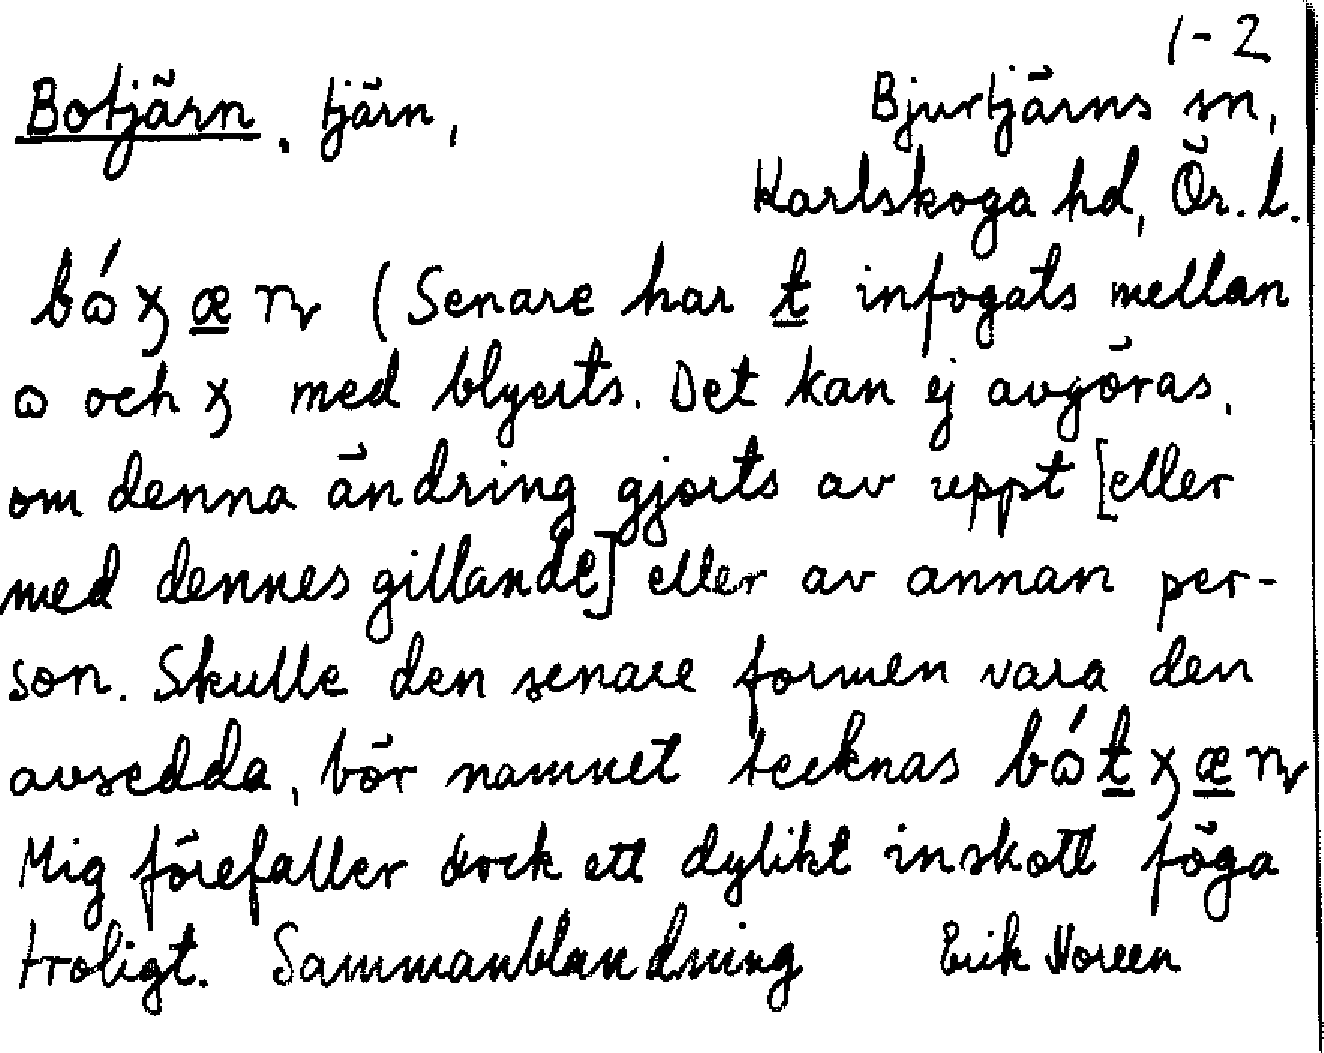 1-2
Botjärn, tjärn, Bjurtjärns sn,
Karlskoga hd, Ör. l.
(Senare har t infogats mellan
och med blyerts. Det kan ej avgöras,
om denna ändring gjorts av uppt [eller
med dennes gillande] eller av annan per-
son. Skulle den senare formen vara den
avsedda, bör namnet tecknas
Mig förefaller dock ett dylikt inskott föga
troligt. Sammanblandning Erik Noreen